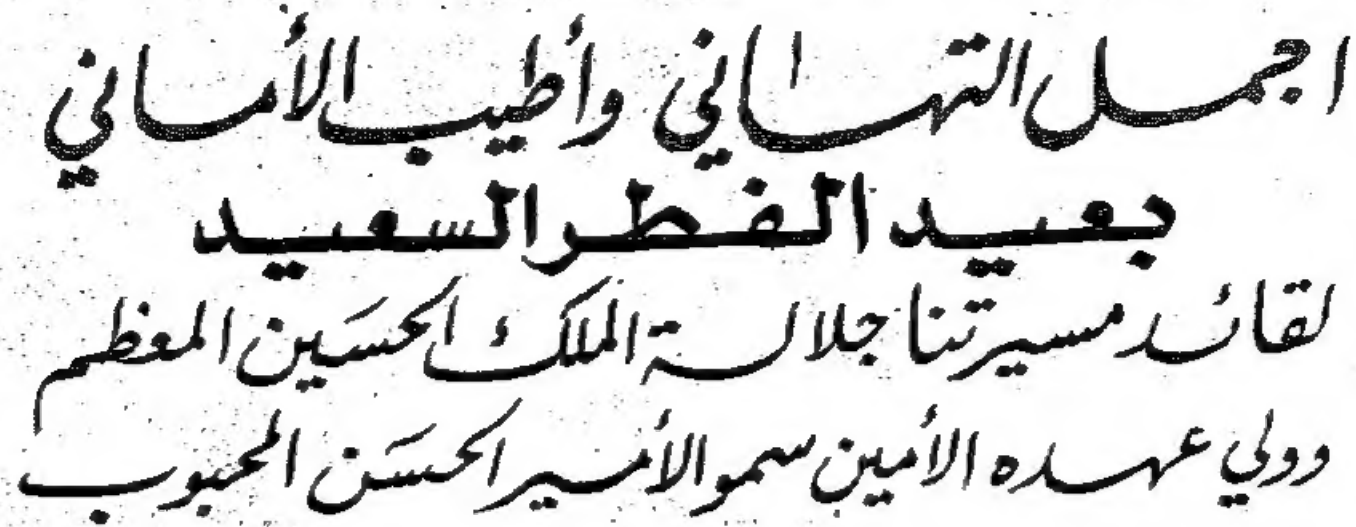 اجمل التهاني وأطيب الأماني
بعيد الفطر السعيد
لقائد مسيرتنا جلالة الملك الحسَين المعظم
وولي عهده الأمين سمو الأمير الحسَن المحبوب